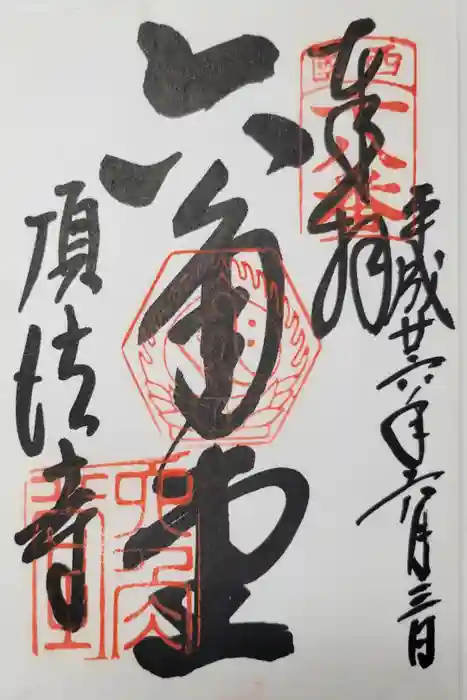 平成廿六年六月三日
奉拝
西國
十八番
六角堂
頂法寺